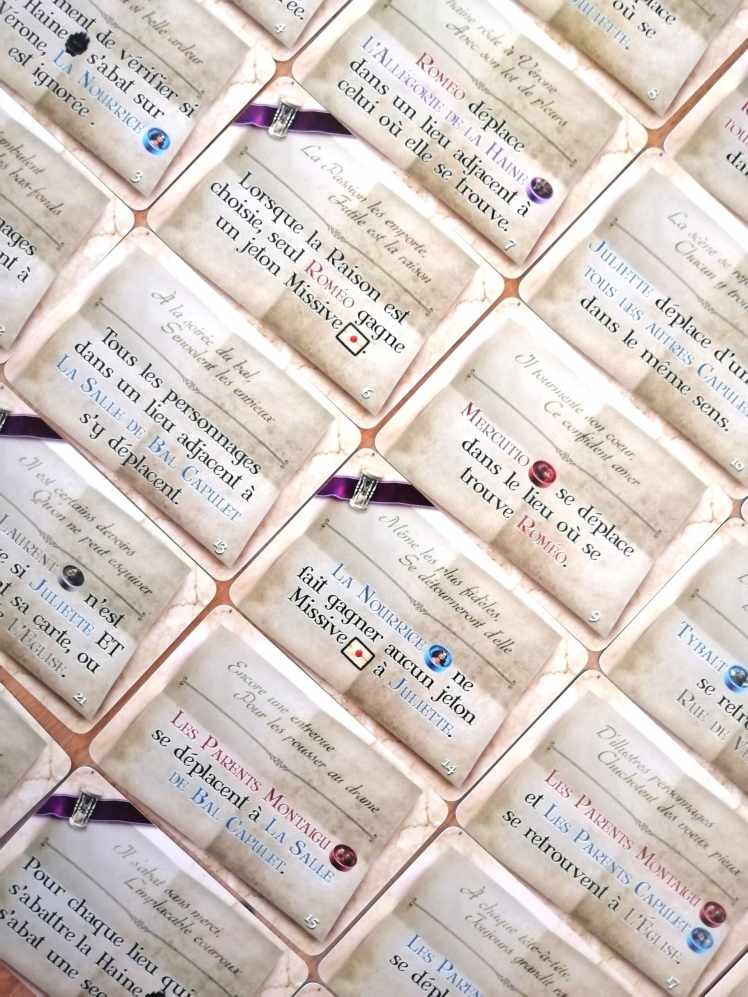 ée.
4
si belle ardeur
ment de vérifier si
Haine s'abat sur
Vérone, LA NOURRICE
est ignorée.
3
haine rôde à Vérone
Avec son lot de pleurs
ROMÉO déplace
L'ALLÉGORIE DE LA HAINE
dans un lieu adjacent à
celui où elle se trouve.
7
où se
JULIETTE.
8
La Passion les emporte,
Futile est la raison
Lorsque la Raison est
choisie, seul ROMÉO gagne
un jeton Missive.
6
La scène se
Chacun y
JULIETTE déplace d'un
TOUS LES AUTRES CAPULE
dans le même sens.
10
les bas-fonds
nages
nt à
À la soirée du bal,
Tous les personnages
dans un lieu adjacent à
LA SALLE DE BAL CAPULET
s'y déplacent.
13
Il tourmente son coeur,
Ce confident amer
MERCUTIO se déplace
dans le lieu où se
trouve ROMÉO.
9
Il est certains devoirs
Qu'on ne peut esquiver
LAURENT n'est
si JULIETTE ET
sa carte, ou
L'ÉGLISE.
21
Même les plus fidèles,
Se détourneront d'elle
LA NOURRICE ne
fait gagner aucun jeton
Missive à JULIETTE.
14
TYBALT
se retr
RUE DE V
Encore une entrevue
Pour les pousser au drame
LES PARENTS MONTAIGU
se déplacent à LA SALLE
DE BAL CAPULET.
15
D'illustres personnages
Chuchotant des voeux pieux
LES PARENTS MONTAIGU
et LES PARENTS CAPULET
se retrouvent à L'ÉGLISE.
17
Il s'abat sans merci,
L'implacable courroux
Pour chaque lieu qui
s'abattre la Haine
s'abat une sec
À chaque tête-à-tête,
Toujours grandit
LES PAREN
se dépl